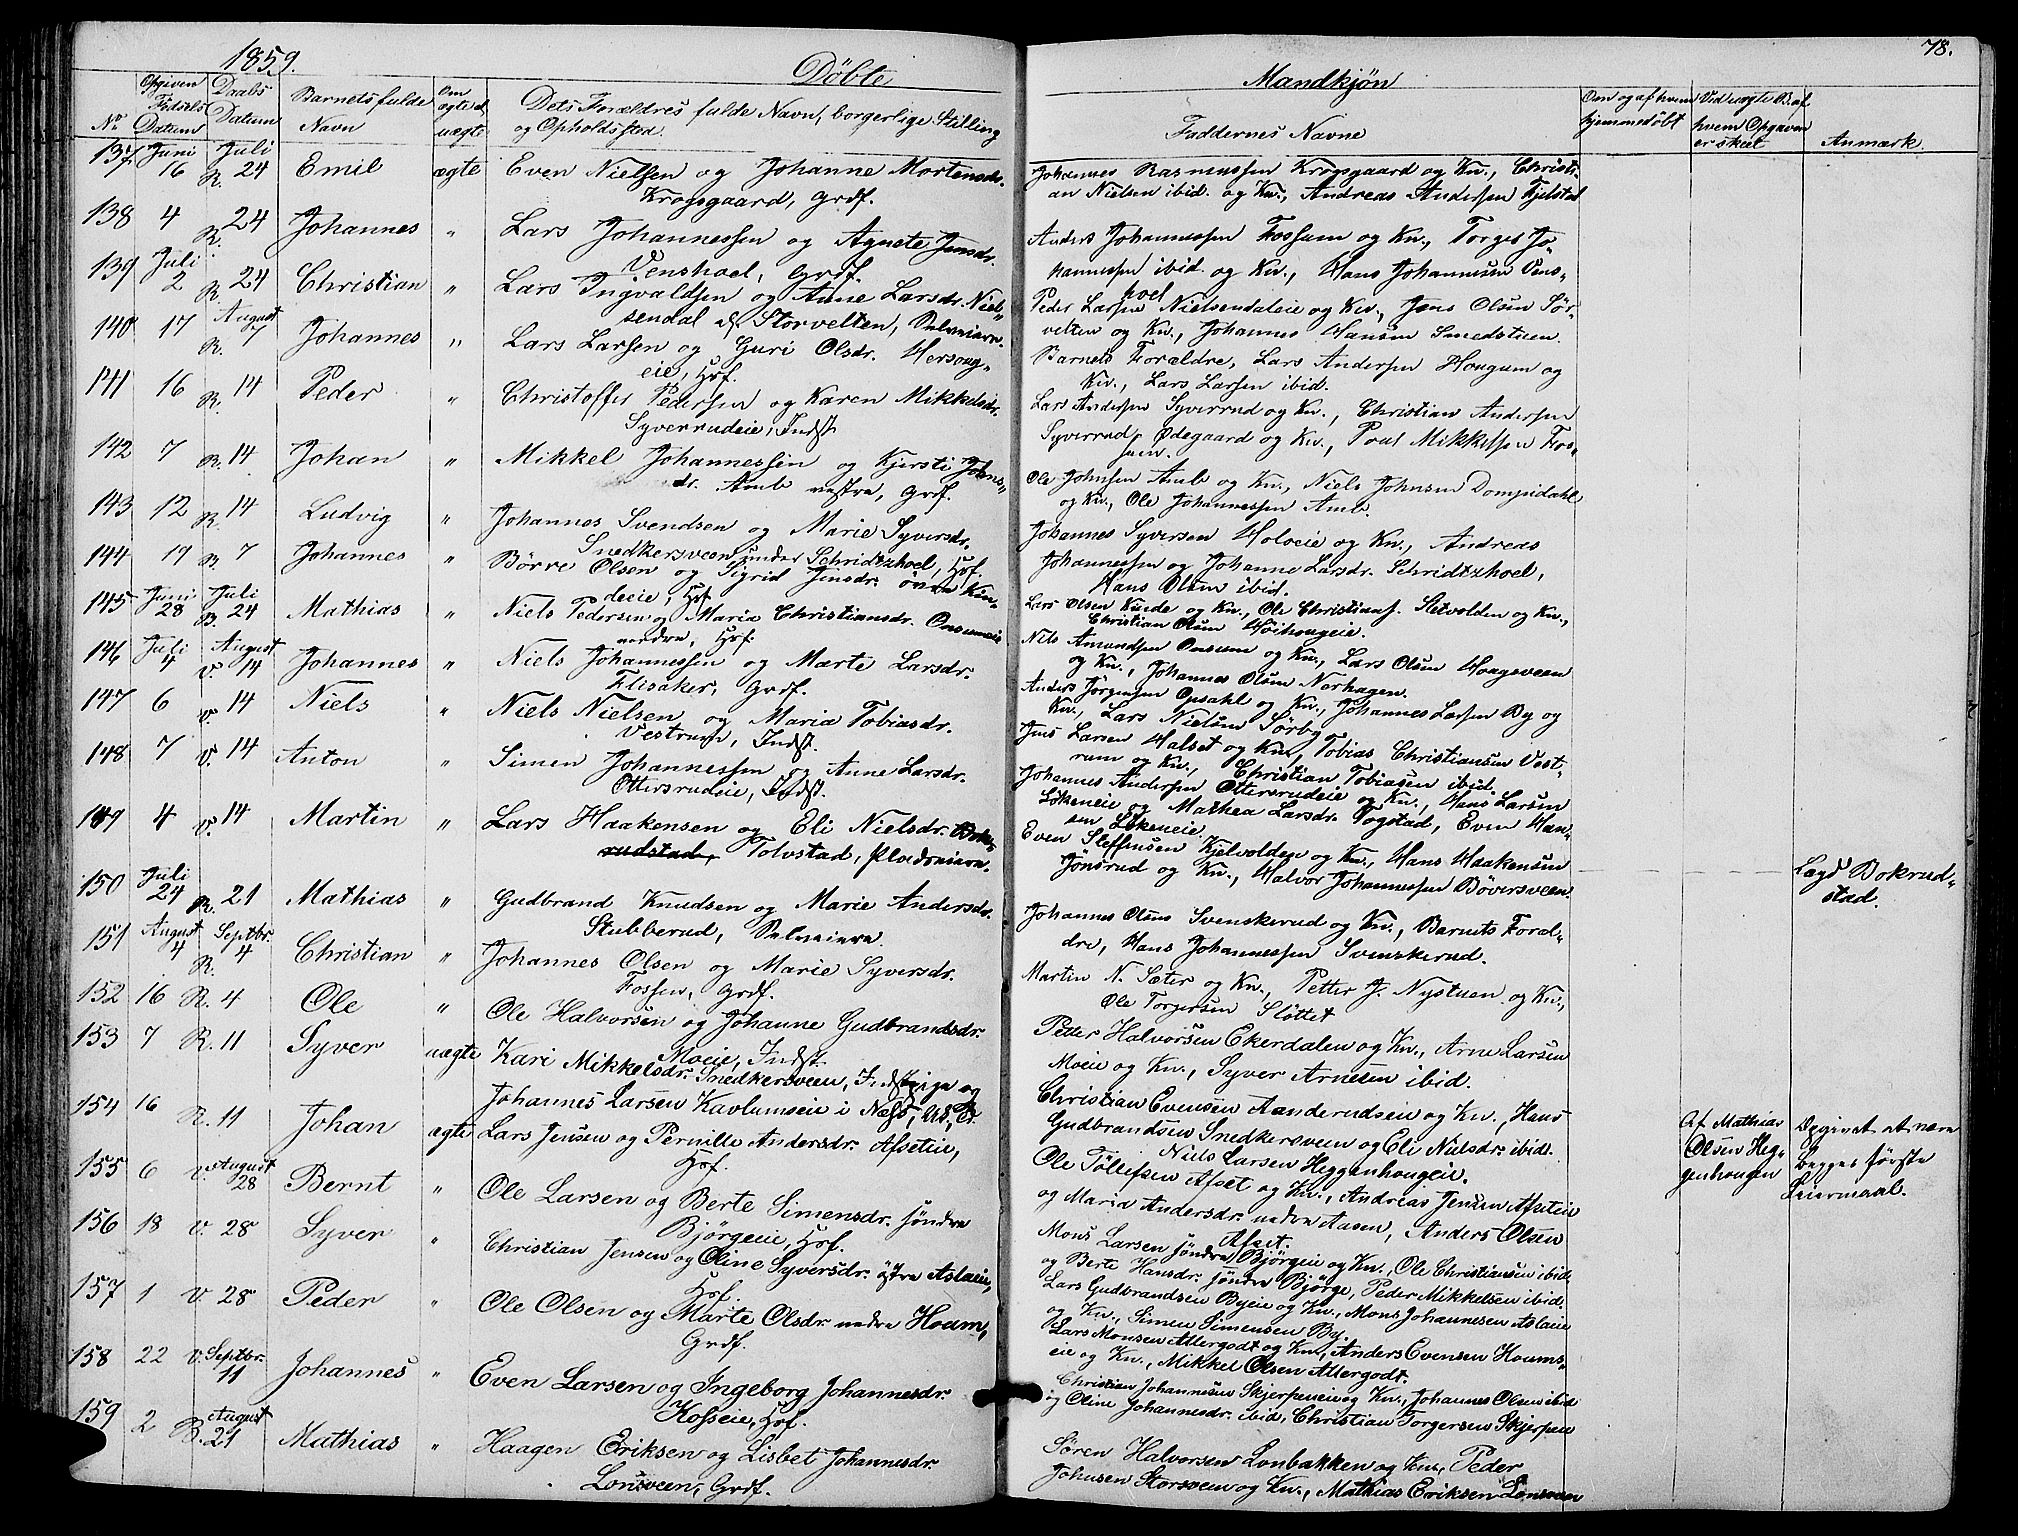 1859.
Döbte
Mandkjøn
78.
No
Opgiven Fødsels Datum
Daabs Datum
Barnets fulde Navn
Om ægte el. uægte
Dets Forældres fulde Navn, borgerlige Stilling og Opholdssted
Faddernes Navne
Om og af hvem hjemmedøbt
Ved uægte B. af hvem Opgaven er skeet
Anmærk.
137 Juni 16 R. Juli 24 Emil ægte Even Nielsen og Johanne Mortensdr.
Krogsgaard, Grdf.
Johannes Rasmussen Krogsgaard og Kn., Christi-
an Nielsen ibid. og Kn., Andreas Andersen Fjelstad
138 4 R. 24 Johannes " Lars Johannessen og Agnete Jensdr.
Venshoel, Grdf.
Anders Johannessen Fossum og Kn., Torger Jo-
hannessen ibid. og Kn., Hans Johannesen Vens-
hoel
139 Juli 2 R. 24 Christian " Lars Ingvaldsen og Anne Larsdr. Niel-
sendal & Storvelten, Selveiere.
Peder Larsen Nielsendaleie og Kn., Jens Olsen Stör-
velten og Kn., Johannes Hansen Smedstuen.
140 17 R. August 7 Johannes " Lars Larsen og Guri Olsdr. Hersoug-
eie, Hsf.
Barnets Forældre, Lars Andersen Hougum og
Kn., Lars Larsen ibid.
141 16 R. 14 Peder " Christoffer Pedersen og Karen Mikkelsdr.
Syverrudeie, Indst.
Lars Andersen Syverrud og Kn., Christian Andersen
Syverruds Ødegaard og Kn., Poul Mikkelsen Fos-
sen.
142 7 R. 14 Johan " Mikkel Johannessen og Kjersti Johns-
dr. Amb vestre, Grdf.
Ole Johnsen Amb og Kn., Niels Johnsen Dompidahl
og Kn., Ole Johannessen Amb.
143 12 R. 14 Ludvig " Johannes Svendsen og Marie Syversdr.
Snedkersveen under Schridtzhoel, Hsf.
Johannes Syversen Holoeie og Kn., Andreas
Johannessen og Johanne Larsdr. Schridtzhoel,
Hans Olsen ibid.
144 19 R. 7 Johannes " Börre Olsen og Sigrid Jensdr. övre Kin-
deeie, Hsf.
Lars Olsen Kinde og Kn., Ole Christians. Sletvolden og Kn.,
Christian Olsen Höihougeie.
145 Juni 28 B. Juli 24 Mathias " Niels Pedersen og Maria Christiansdr. Onsumeie
nordre, Hsf.
Nils Amundsen Onsum og Kn., Lars Olsen Hougsveen
og Kn., Johannes Olsen Norhagen.
146 Juli 4 V. August 14 Johannes " Niels Johannessen og Marte Larsdr.
Flisaker, Grdf.
Anders Jörgensen Opsahl og Kn., Johannes Larsen By og
Kn., Lars Nielsen Sörby
147 6 V. 14 Niels " Niels Nielsen og Maria Tobiasdr.
Vestrum, Indst.
Jens Larsen Halset og Kn., Tobias Christiansen Vest-
rum og Kn., Christian Tobiasen ibid.
148 7 V. 14 Anton " Simen Johannessen og Anne Larsdr.
Ottersrudeie, Indst.
Johannes Andersen Ottersrudeie og Kn., Hans Larsen
Lökeneie og Mathea Larsdr. Pogstad, Even Han-
sen Lökeneie.
149 4 V. 14 Martin " Lars Haakensen og Eli Nielsdr. Bok-
rudstad, Tolvstad, Pladseiere.
Even Steffensen Kjelvolden og Kn., Hans Haakensen
Jönsrud og Kn., Halvor Johannessen Böversveen.
Lægd Bokrud-
stad.
150 Juli 24 R. 21 Mathias " Gudbrand Knudsen og Marie Andersdr.
Stubberud, Selveiere.
Johannes Olsen Svenskerud og Kn., Barnets Foræl-
dre, Hans Johannessen Svenskerud.
151 August 4 R. Septbr. 4 Christian " Johannes Olsen og Marie Syversdr.
Fossen, Grdf.
Martin N. Sæter og Kn., Petter J. Nystuen og Kn.,
Ole Torgersen Slöttet
152 16 R. 4 Ole " Ole Halvorsen og Johanne Gudbrandsdr.
Moeie, Indst.
Petter Halvorsen Ekerdalen og Kn., Arne Larsen
Moeie og Kn., Syver Arnesen ibid.
153 7 R. 11 Syver uægte Kari Mikkelsdr. Snedkersveen, Indst.pige og
Johannes Larsen Kavlumseie i Næss, U.K.
Christian Evensen Aanderudseie og Kn., Hans
Gudbrandsen Snedkersveen og Eli Nielsdr. ibid.
Niels Larsen Heggenhougeie.
Af Mathias
Olsen Heg-
genhougen
Opgivet at være
begges förste
Leiermaal.
154 16 R. 11 Johan ægte Lars Jensen og Pernille Andersdr. Afseteie,
Hsf.
Ole Töllefsen Afset og Kn., Andreas Jensen Afseteie
og Maria Andersdr. nedre Aasen, Anders Olsen
Afset.
155 6 V. August 28 Bernt " Ole Larsen og Berte Simensdr. söndre
Björgeie, Hsf.
Mons Larsen söndre Björgeie og Kn., Ole Christiansen ibid.
og Berte Hansdr. söndre Björge, Peder Mikkelsen ibid.
156 18 V. 28 Syver " Christian Jensen og Oline Syversdr. östre Aslaeie,
Hsf.
Lars Gudbrandsen Byeie og Kn., Mons Johannesen Aslaeie
og Kn., Simen Simensen By.
157 1 V. 28 Peder " Ole Olsen og Marte Olsdr. nedre Houm,
Grdf.
Lars Monsen Allergodt og Kn., Anders Evensen Houms-
eie og Kn., Mikkel Olsen Allergodt.
158 22 V. Septbr. 11 Johannes " Even Larsen og Ingeborg Johannesdr.
Kosseie, Hsf.
Christian Johannesen Skjerpeneie og Kn., Johannes Olsen ibid
og Oline Johannesdr. ibid, Christian Torgersen Skjerpen
159 2 B. August 21 Mathias " Haagen Eriksen og Lisbet Johannesdr.
Lonsveen, Grdf.
Sören Halvorsen Lonbakken og Kn., Peder
Johnsen Storsveen og Kn., Mathias Eriksen Lonsveen